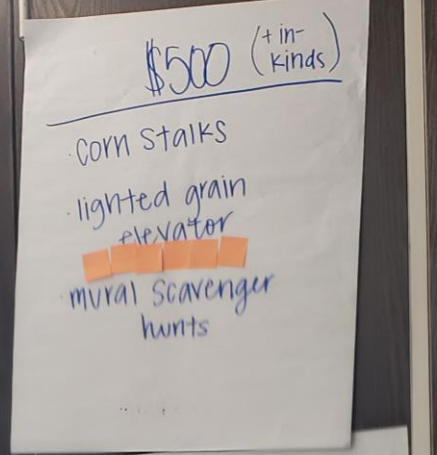 $500 (+ in-
kinds)
· corn stalks
· lighted grain
elevator
· mural scavenger
hunts